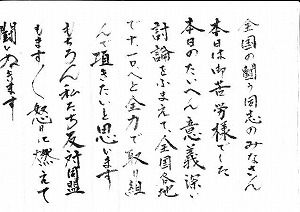 全国の闘う同志のみなさん
本日は御苦労様でした
本日のたいへん意義深い
討論をふまえて、全国各地
で十、一〇へと全力で取り組
んで頂きたいと思います
もちろん私たち反対同盟
もます〱怒りに燃えて
闘いぬきます